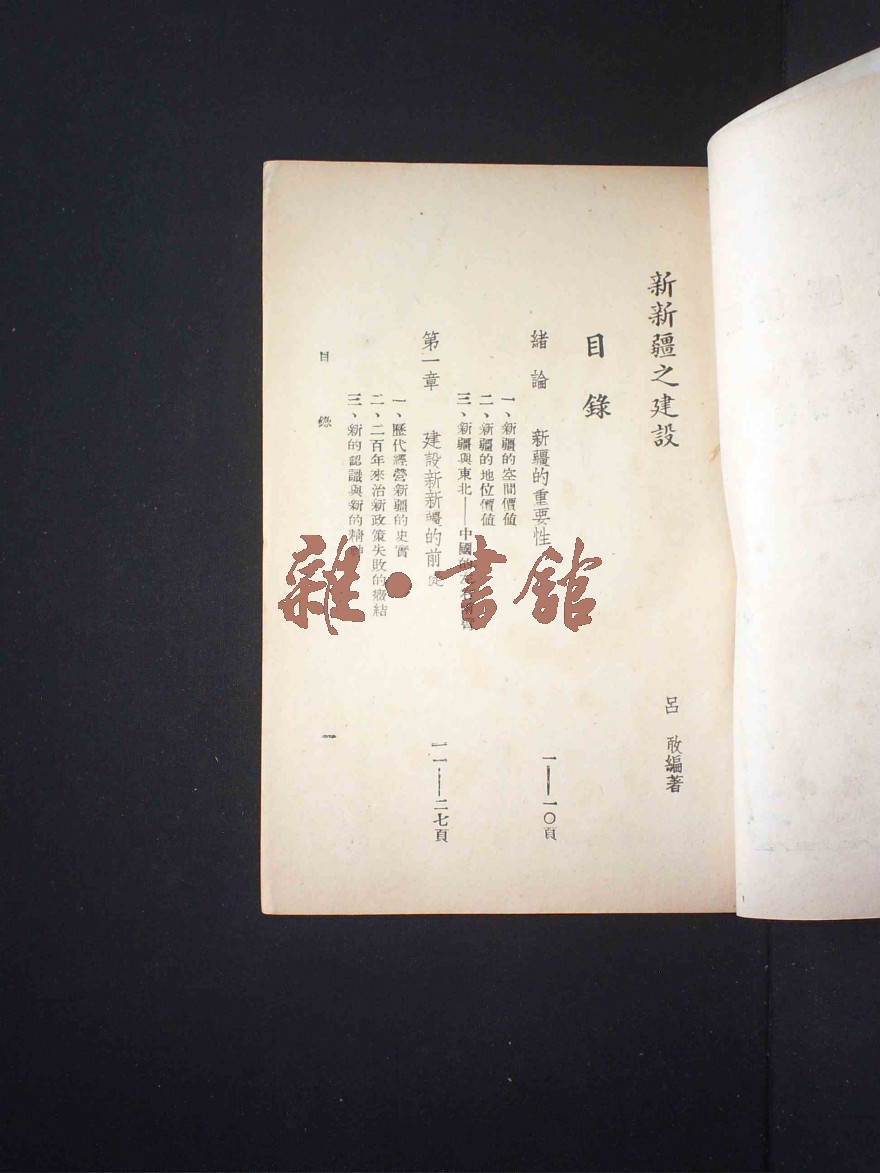 新新疆之建設
呂敢編著
目錄
緒論 新疆的重要性 一——一〇頁
一、新疆的空間價値
二、新疆的地位價値
三、新疆與東北——中國的左右
第一章 建設新新疆的前 一一——二七頁
一、歷代經營新疆的史實
二、二百年來治新政策失敗的癥結
三、新的認識與新的精神
目錄
一
雜·書館